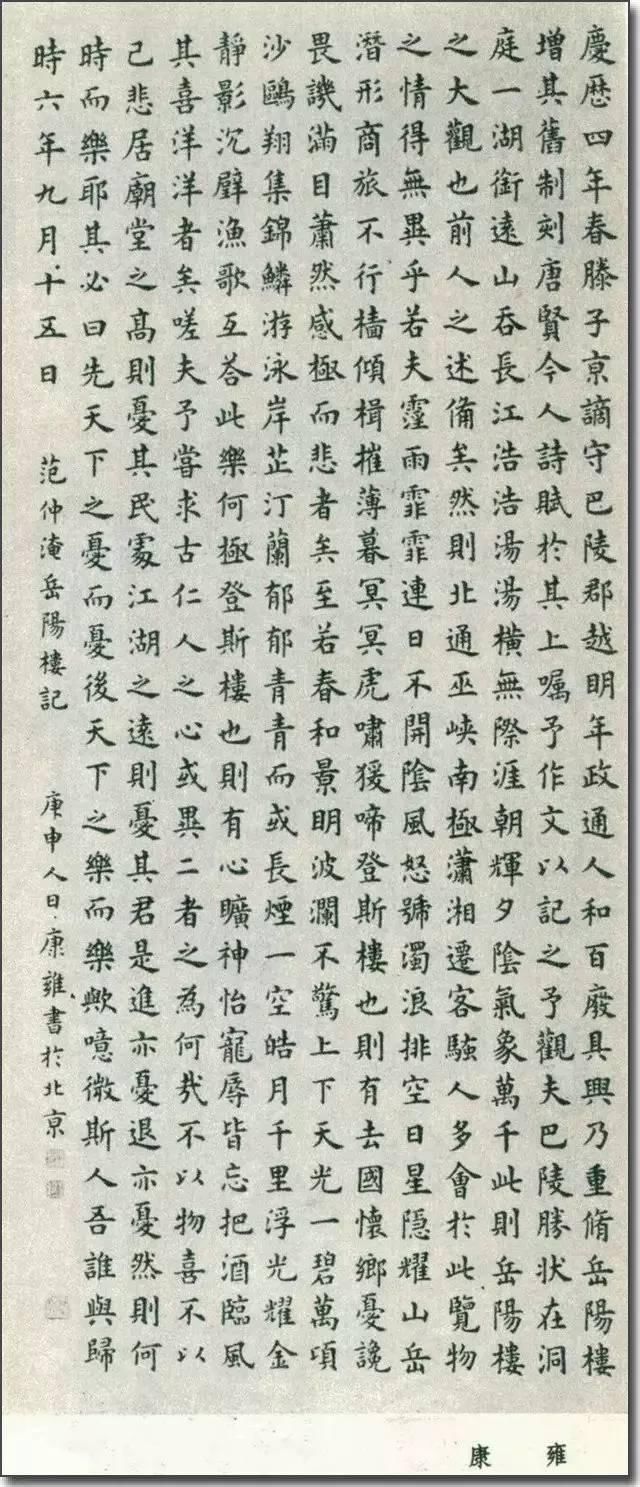 慶曆四年春滕子京謫守巴陵郡越明年政通人和百廢具興乃重脩岳陽樓
增其舊制刻唐賢今人詩賦於其上囑予作文以記之予觀夫巴陵勝狀在洞
庭一湖銜遠山吞長江浩浩湯湯橫無際涯朝輝夕陰氣象萬千此則岳陽樓
之大觀也前人之述備矣然則北通巫峽南極瀟湘遷客騷人多會於此覽物
之情得無異乎若夫霪雨霏霏連日不開陰風怒號濁浪排空日星隱耀山岳
潛形商旅不行檣傾楫摧薄暮冥冥虎嘯猨啼登斯樓也則有去國懷鄉憂讒
畏譏滿目蕭然感極而悲者矣至若春和景明波瀾不驚上下天光一碧萬頃
沙鷗翔集錦鱗游泳岸芷汀蘭郁郁青青而或長煙一空皓月千里浮光耀金
靜影沉璧漁歌互荅此樂何極登斯樓也則有心曠神怡寵辱皆忘把酒臨風
其喜洋洋者矣嗟夫予嘗求古仁人之心或異二者之為何哉不以物喜不以
己悲居廟堂之高則憂其民處江湖之遠則憂其君是進亦憂退亦憂然則何
時而樂耶其必曰先天下之憂而憂後天下之樂而樂歟噫微斯人吾誰與歸
時六年九月十五日 范仲淹岳陽樓記 庚申人日康雍書於北京
康雍